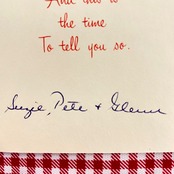 And this is
the time
To tell you so.
Suzie, Pete & Glenn